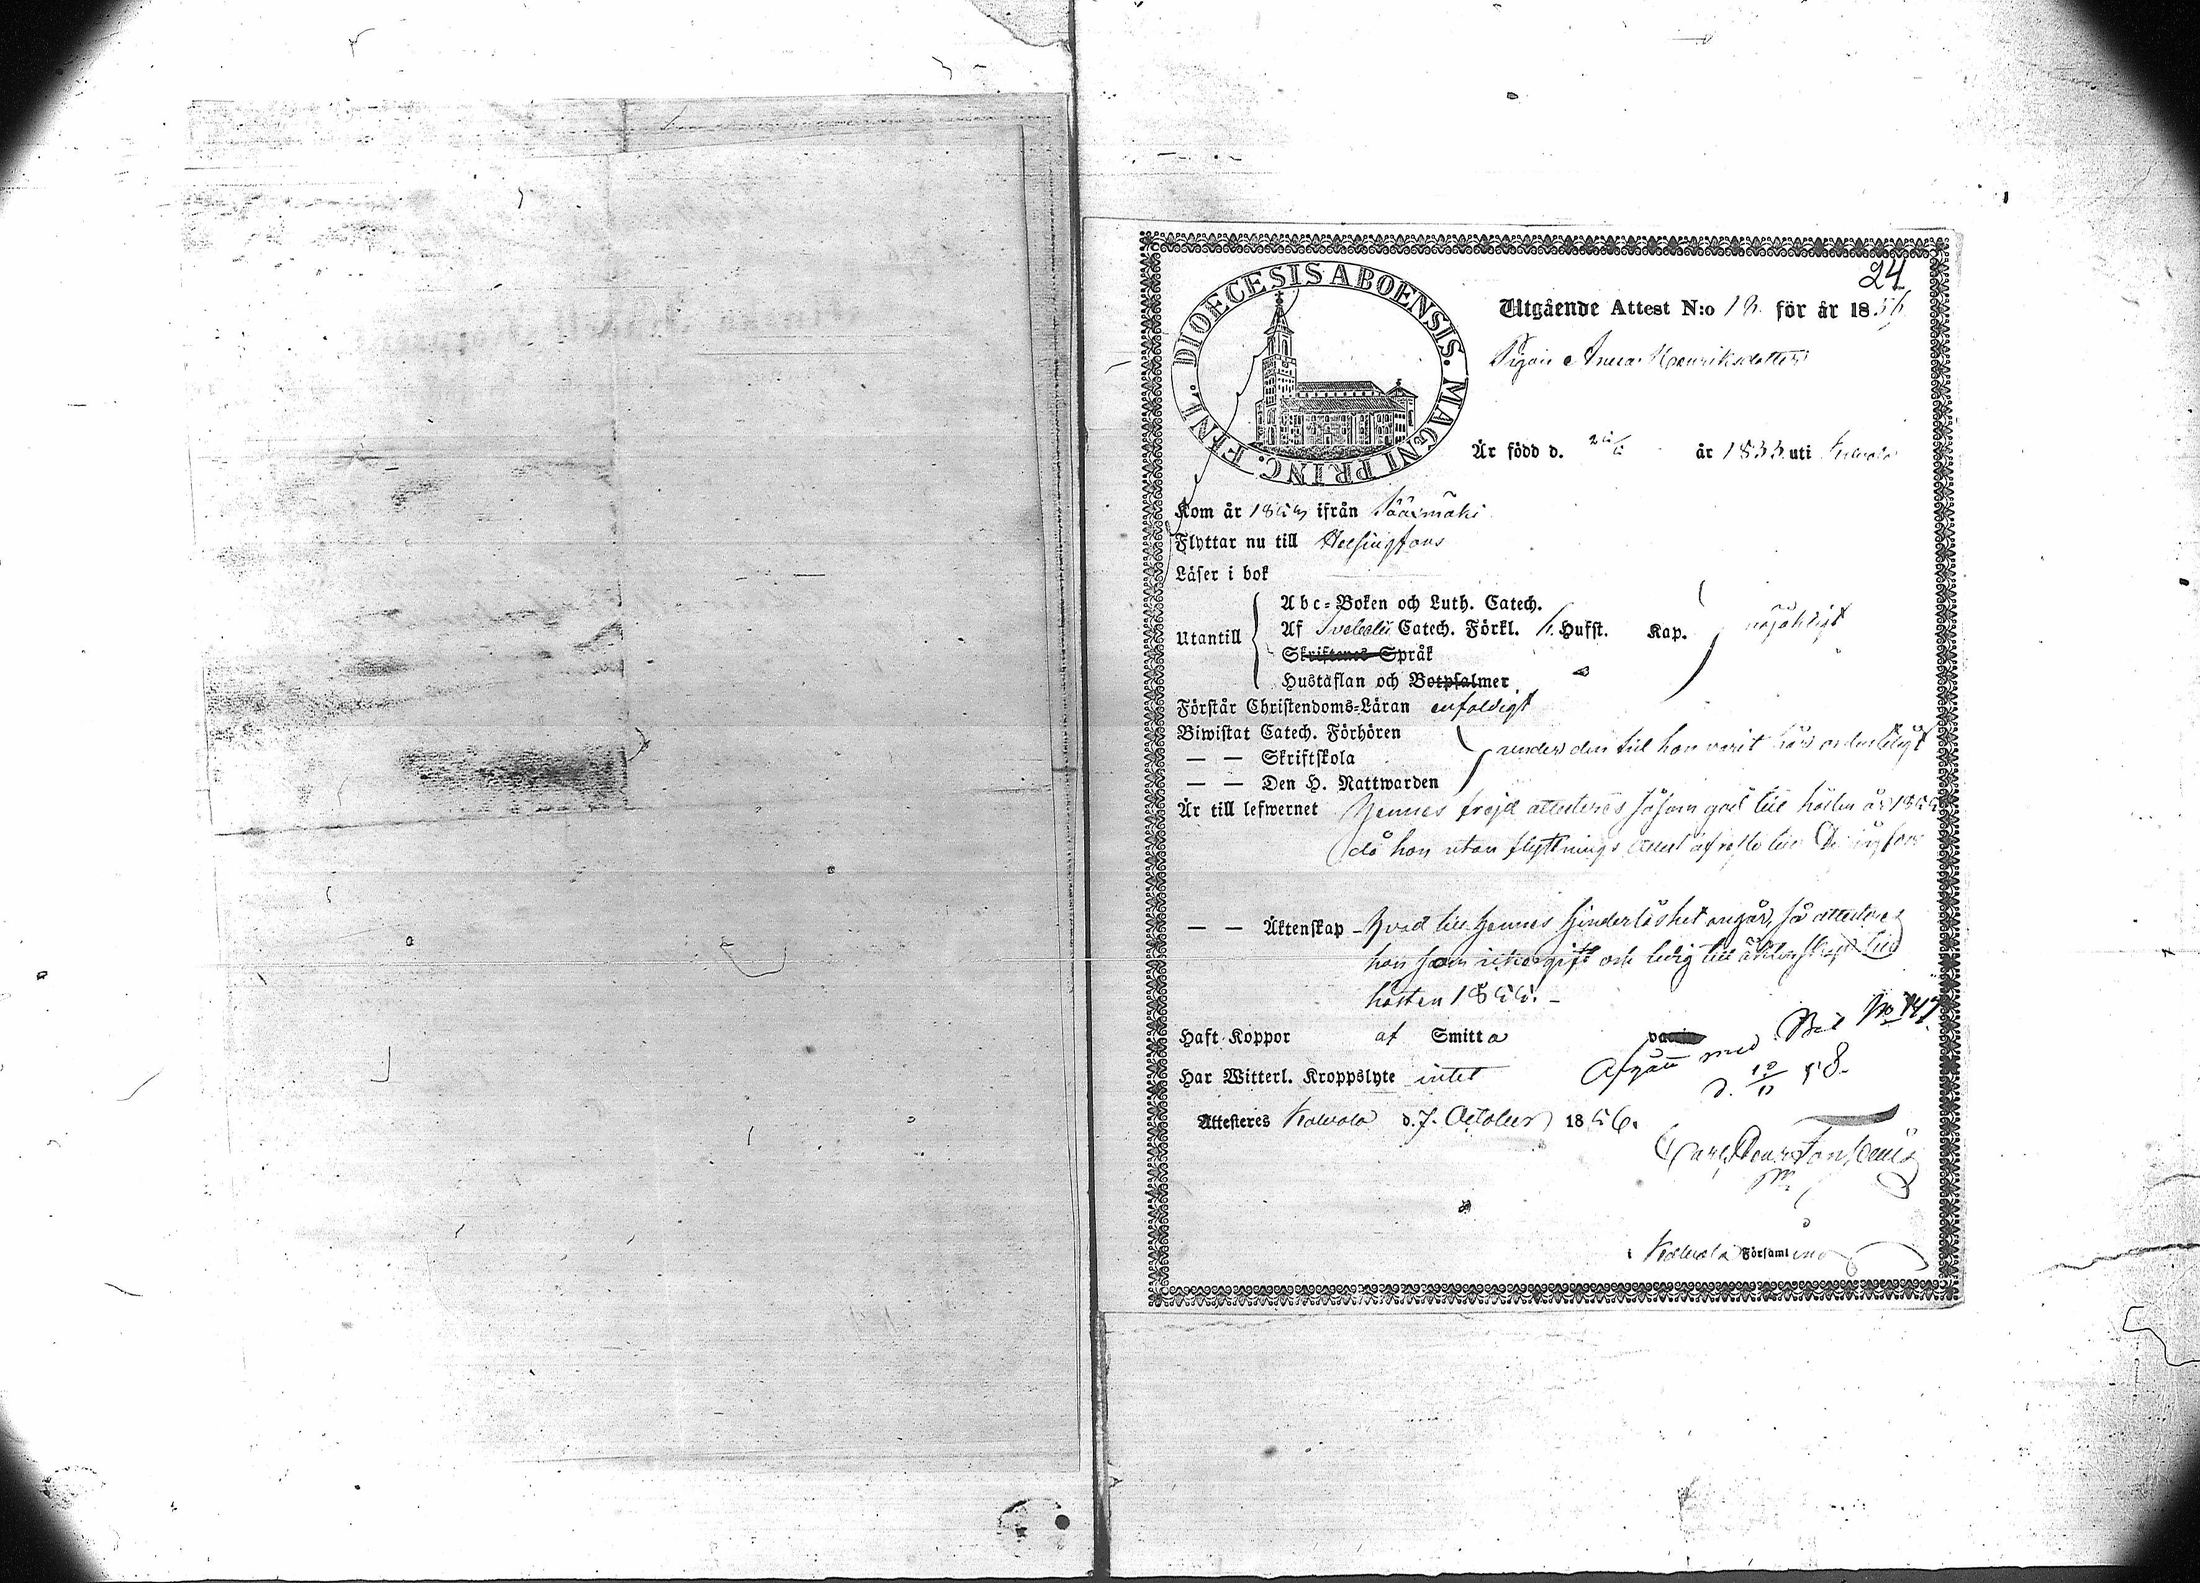 24
DIOECESIS ABOENSIS. MAGNI PRINC. FINL.
Utgående Attest N:o 18 för år 1856
Pigan Anna Henriksdotter
Är född d. år 1833 uti Kalvola
Kom år 1854 ifrån Sääxmäki
Flyttar nu till Helsingfors
Läser i bok
Utantill
Abc-Boken och Luth. Catech.
Af Svebelii Catech. Förkl. Hufst. Kap. nöjaktigt
Skriftenes Språk
Hustaflan och Botpsalmer
Förstår Christendoms-Läran enfaldigt
Biwistat Catech. Förhören
— — Skriftskola under den tid hon varit här ordentligt
— — Den H. Nattwarden
Är till lefwernet Hennes frejd attesteras såsom god till hösten år 1855
då hon utan flyttnings attest afreste till Helsingfors
— — Äktenskap – Hvad till hennes hinderlöshet angår, så attesteras
hon som icke gift och ledig till äktenskap till
hösten 1855. –
Haft Koppor af Smitta
Afgått med Bet. No 147
d. 12/11 58.
Har Witterl. Kroppslyte intet
Attesteras Kalvola d. 7. October 1856.
Carl
i Kalvola Församling